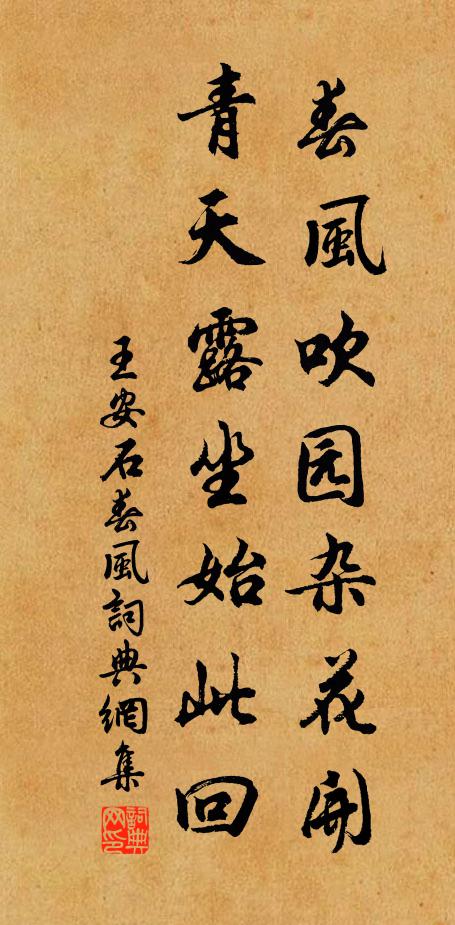 春風吹园杂花開
青天露坐始此回
王安石春風詞典網集
詞典網印